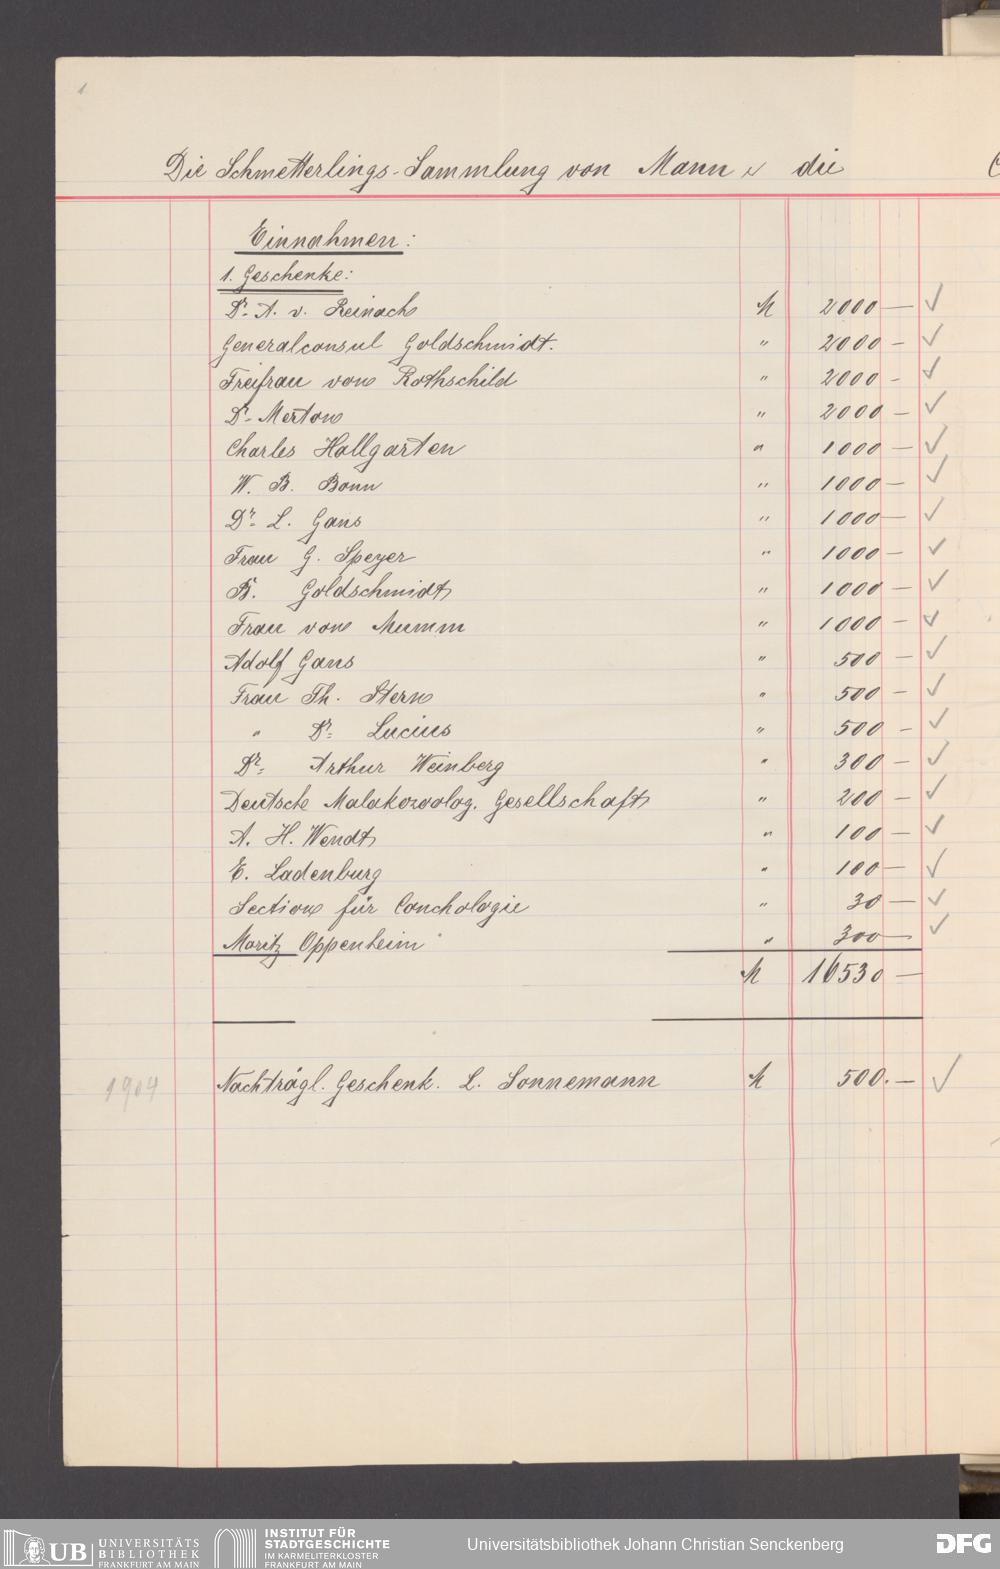 1
Die Schmetterlings-Sammlung von Mann & die
Einnahmen:
1. Geschenke:
Dr. A. v. Reinach M 2000 — ✓
Generalconsul Goldschmidt. " 2000 — ✓
Freifrau von Rothschild " 2000 — ✓
Dr. Merton " 2000 — ✓
Charles Hallgarten " 1000 — ✓
W. B. Bonn " 1000 — ✓
Dr. L. Gans " 1000 — ✓
Frau G. Speyer " 1000 — ✓
B. Goldschmidt " 1000 — ✓
Frau von Mumm " 1000 — ✓
Adolf Gans " 500 — ✓
Frau Th. Stern " 500 — ✓
" Dr. Lucius " 500 — ✓
Dr. Arthur Weinberg " 300 — ✓
Deutsche Malakozoolog. Gesellschaft " 200 — ✓
A. H. Wendt " 100 — ✓
E. Ladenburg " 100 — ✓
Section für Conchologie " 30 — ✓
Moritz Oppenheim " 300 — ✓
M 16530 —
1904 Nachträgl. Geschenk. L. Sonnemann M 500. — ✓
UB UNIVERSITÄTS BIBLIOTHEK FRANKFURT AM MAIN
INSTITUT FÜR STADTGESCHICHTE IM KARMELITERKLOSTER FRANKFURT AM MAIN
Universitätsbibliothek Johann Christian Senckenberg
DFG